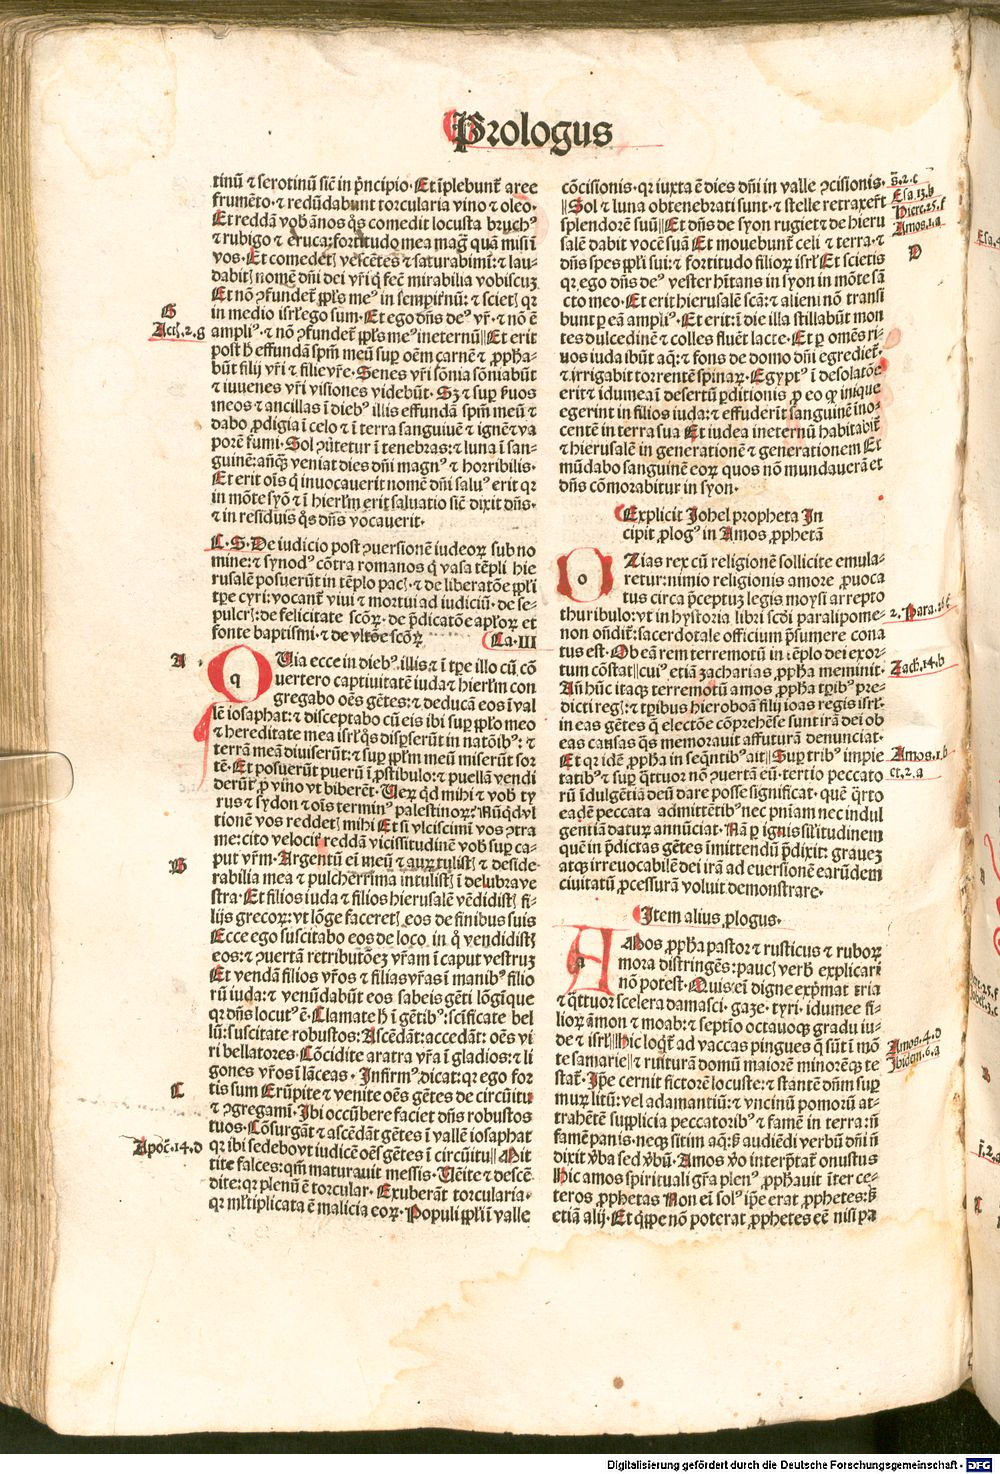 Prologus
tinū ⁊ serotinū sic̄ in p̄ncipio. Et īplebunt᷑ aree
frumēto. ⁊ redūdabunt torcularia vino ⁊ oleo.
Et reddā vob̄ ānos q̄s comedit locusta bruchꝰ
⁊ rubigo ⁊ eruca: fortitudo mea maḡ quā misi ī
vos. Et comedet᷑ vescētes ⁊ saturabimī: ⁊ lau-
dabit᷑ nomē dn̄i dei vr̄i q̇ fec̄ mirabilia vobiscuꝫ
Et nō ꝯfundet᷑ ꝓpl̄s meꝰ in sempit̄nū: ⁊ sciet᷑ qꝛ
in medio isrl̄ ego sum. Et ego dn̄s deꝰ vr̄. ⁊ nō ē
ampliꝰ. ⁊ nō ꝯfundet᷑ ꝓpl̄s meꝰ ineternū ‖ Et erit
post h̄ effundā spm̄ meū suꝑ oēm carnē ⁊ ꝓpħa-
būt filij vr̄i ⁊ filie vr̄e. Senes vr̄i sōnia sōniabūt
⁊ iuuenes vr̄i visiones videbūt. Sꝫ ⁊ suꝑ ẜuos
meos ⁊ ancillas ī diebꝰ illis effundā spm̄ meū ⁊
dabo ꝓdigia ī celo ⁊ ī terra sanguinē ⁊ ignē ⁊ va
porē fumi. Sol ꝯūtetur ī tenebras: ⁊ luna ī san-
guinē: an̄qꝫ veniat dies dn̄i magnꝰ ⁊ horribilis.
Et erit oīs q̇ inuocauerit nomē dn̄i saluꝰ erit qꝛ
in mōte syō ⁊ ī hierl̄m erit saluatio sic̄ dixit dn̄s.
⁊ in residuis q̄s dn̄s vocauerit.
C. S. De iudicio post ꝯuersionē iudeoꝝ sub no
mine: ⁊ synodꝰ cōtra romanos q̇ vasa tēpli hie
rusalē posuerūt in tēplo pacꝭ. ⁊ de liberatōe ꝓpl̄i
tp̄e cyri: vocant᷑ viui ⁊ mortui ad iudiciū. de se-
pulcrꝭ: de felicitate scōꝝ. de p̄dicatōe apl̄oꝝ et
fonte baptismi. ⁊ de vltōe scōꝝ
Ca. III
q
QVia ecce in diebꝰ illis ⁊ ī tp̄e illo cū cō
uertero captiuitatē iuda ⁊ hierl̄m con
gregabo oēs gētes: ⁊ deducā eos ī val
lē iosaphat: ⁊ disceptabo cū eis ibi suꝑ ꝓpl̄o meo
⁊ hereditate mea isrl̄ q̄s disꝑserūt in natōibꝰ: ⁊
terrā meā diuiserūt: ⁊ suꝑ ꝓpl̄m meū miserūt sor
tē. Et posuerūt puerū ī ꝓstibulo: ⁊ puellā vendi
derūt ꝓ vino vt biberēt. Ueꝝ qd̄ mihi ⁊ vob̄ ty
rus ⁊ sydon ⁊ oīs terminꝰ palestinoꝝ: Nūqd̄ vl
tionē vos reddetꝭ mihi Et si vlciscimī vos ꝯtra
me: cito velocit᷑ reddā vicissitudinē vob̄ suꝑ ca-
put vr̄m. Argentū eī meū ⁊ auꝝ tulistꝭ ⁊ deside-
rabilia mea ⁊ pulcherrima intulistꝭ ī delubra ve
stra. Et filios iuda ⁊ filios hierusalē vendidistꝭ fi-
lijs grecoꝝ: vt lōge faceretꝭ eos de finibus suis
Ecce ego suscitabo eos de loco in q̊ vendidistꝭ
eos: ⁊ ꝯuertā retributōeꝫ vr̄am ī caput vestruꝫ
Et vendā filios vr̄os ⁊ filias vr̄as ī manibꝰ filio
rū iuda: ⁊ venūdabūt eos sabeis gēti lōgīque
qꝛ dn̄s locutꝰ ē. Clamate h̄ ī gētibꝰ: scīficate bel
lū: suscitate robustos: Ascēdāt: accedāt: oēs vi
ri bellatores. Cōcidite aratra vr̄a ī gladios: ⁊ li
gones vr̄os ī lāceas. Infirmꝰ dicat: qꝛ ego for
tis sum Erūpite ⁊ venite oēs gētes de circūitu
⁊ ꝯgregamī. Ibi occūbere faciet dn̄s robustos
tuos. Cōsurgāt ⁊ ascēdāt gētes ī vallē iosaphat
qꝛ ibi sedebo vt iudicē oēs gētes ī circūitu ‖ Mit
tite falces: qm̄ maturauit messis. Uēite ⁊ descē
dite: qꝛ plenū ē torcular. Exuberāt torcularia.
qꝛ ml̄tiplicata ē malicia eoꝝ. Populi ꝓpl̄i ī valle
G
Act᷑. 2. g
A
B
C
Apoc̄. 14. d
cōcisionis. qꝛ iuxta ē dies dn̄i in valle ꝯcisionis.
‖ Sol ⁊ luna obtenebrati sunt. ⁊ stelle retraxert̄
splendorē suū ‖ Et dn̄s de syon rugiet ⁊ de hieru
salē dabit vocē suā Et mouebunt᷑ celi ⁊ terra. ⁊
dn̄s spes ꝓpl̄i sui: ⁊ fortitudo filioꝝ isrl̄ Et scietis
qꝛ ego dn̄s deꝰ vester hītans in syon in mōte sā
cto meo. Et erit hierusalē scā: ⁊ alieni nō transi
bunt ꝑ eā ampliꝰ. Et erit: ī die illa stillabūt mon
tes dulcedinē ⁊ colles fluēt lacte. Et ꝑ omēs ri-
uos iuda ibūt aq̄: ⁊ fons de domo dn̄i egrediet᷑.
⁊ irrigabit torrentē spinaꝝ. Egyptꝰ ī desolatōe
erit ⁊ idumea ī desertū ꝑditionis ꝓ eo qꝫ inique
egerint in filios iuda: ⁊ effuderīt sanguinē īno-
centē in terra sua Et iudea ineternū habitabit᷑
⁊ hierusalē in generationē ⁊ generationem Et
mūdabo sanguinē eoꝝ quos nō mundauerā et
dn̄s cōmorabitur in syon.
Explicit Johel propheta In
cipit ꝓlogꝰ in Amos ꝓphetā
o
OZias rex cū religionē sollicite emula-
retur: nimio religionis amore ꝓuoca
tus circa p̄ceptuꝫ legis moysi arrepto
thuribulo: vt in hystoria libri scd̄i paralipome-
non ondit᷑: sacerdotale officium p̄sumere cona
tus est. Ob eā rem terremotū in tēplo dei exor-
tum cōstat ‖ cuiꝰ etiā zacharias ꝓpħa meminit.
An̄ hūc itaqꝫ terremotū amos ꝓpħa tꝑibꝰ pre-
dicti regꝭ: ⁊ tꝑibus hieroboā filij ioas regis isrl̄.
in eas gētes q̄ electōe cōprehēse sunt irā dei ob
eas causas q̄s memorauit affuturā denunciat.
Et qꝛ idē ꝓpħa in seq̄ntibꝰ ait ‖ Suꝑ tribꝰ impie
tatibꝰ ⁊ suꝑ q̄ttuor nō ꝯuertā eū. tertio peccato
rū īdulgētiā deū dare posse significat. quē q̄rto
eadē peccata admittētibꝰ nec pn̄iam nec indul
gentiā daturꝰ annūciat. Nā ꝑ ignis sil̄itudinem
quē in p̄dictas gētes īmittendū p̄dixit: graueꝫ
atqꝫ irreuocabilē dei irā ad euersionē earūdem
ciuitatū ꝓcessurā voluit demonstrare.
Item alius ꝓlogus.
a
AMos ꝓpħa pastor ⁊ rusticus ⁊ ruboꝝ
mora distringēs: paucꝭ verb̄ explicari
nō potest. Quis eī digne exp̄mat tria
⁊ q̄ttuor scelera damasci. gaze. tyri. idumee fi-
lioꝝ āmon ⁊ moab: ⁊ septīo octauoqꝫ gradu iu-
de ⁊ isrl̄ ‖ Hic loqt᷑ ad vaccas pingues q̄ sūt ī mō
te samarie ‖ ⁊ ruiturā domū maiorē minorēqꝫ te
stat᷑. Ip̄e cernit fictorē locuste: ⁊ stantē dn̄m suꝑ
muꝝ litū: vel adamantiū: ⁊ vncinū pomorū at-
trahētē supplicia peccatoribꝰ ⁊ famē in terra: n̄
famē panis. neqꝫ sitim aq̄: ẜꝫ audiēdi verbū dn̄i n̄
dixit v̄ba sed v̄bū. Amos v̊o interp̄tat᷑ onustus
Hic amos spirituali gr̄a plenꝰ ꝓpħauit īter ce-
teros ꝓphetas Non eī solꝰ ip̄e erat ꝓphetes: ẜꝫ
etiā alij. Et q̇ppe nō poterat ꝓphetes eē nisi pa
s̄. 2. c
Esa 13. b
Hiere. 25. f
Amos. 1. a
D
2. Para. 26 c
Zach̄. 14. b
Amos. 1. b
et. 2. a
Amos. 4. d
Ibidem. 6. a
Digitalisierung gefördert durch die Deutsche Forschungsgemeinschaft - DFG